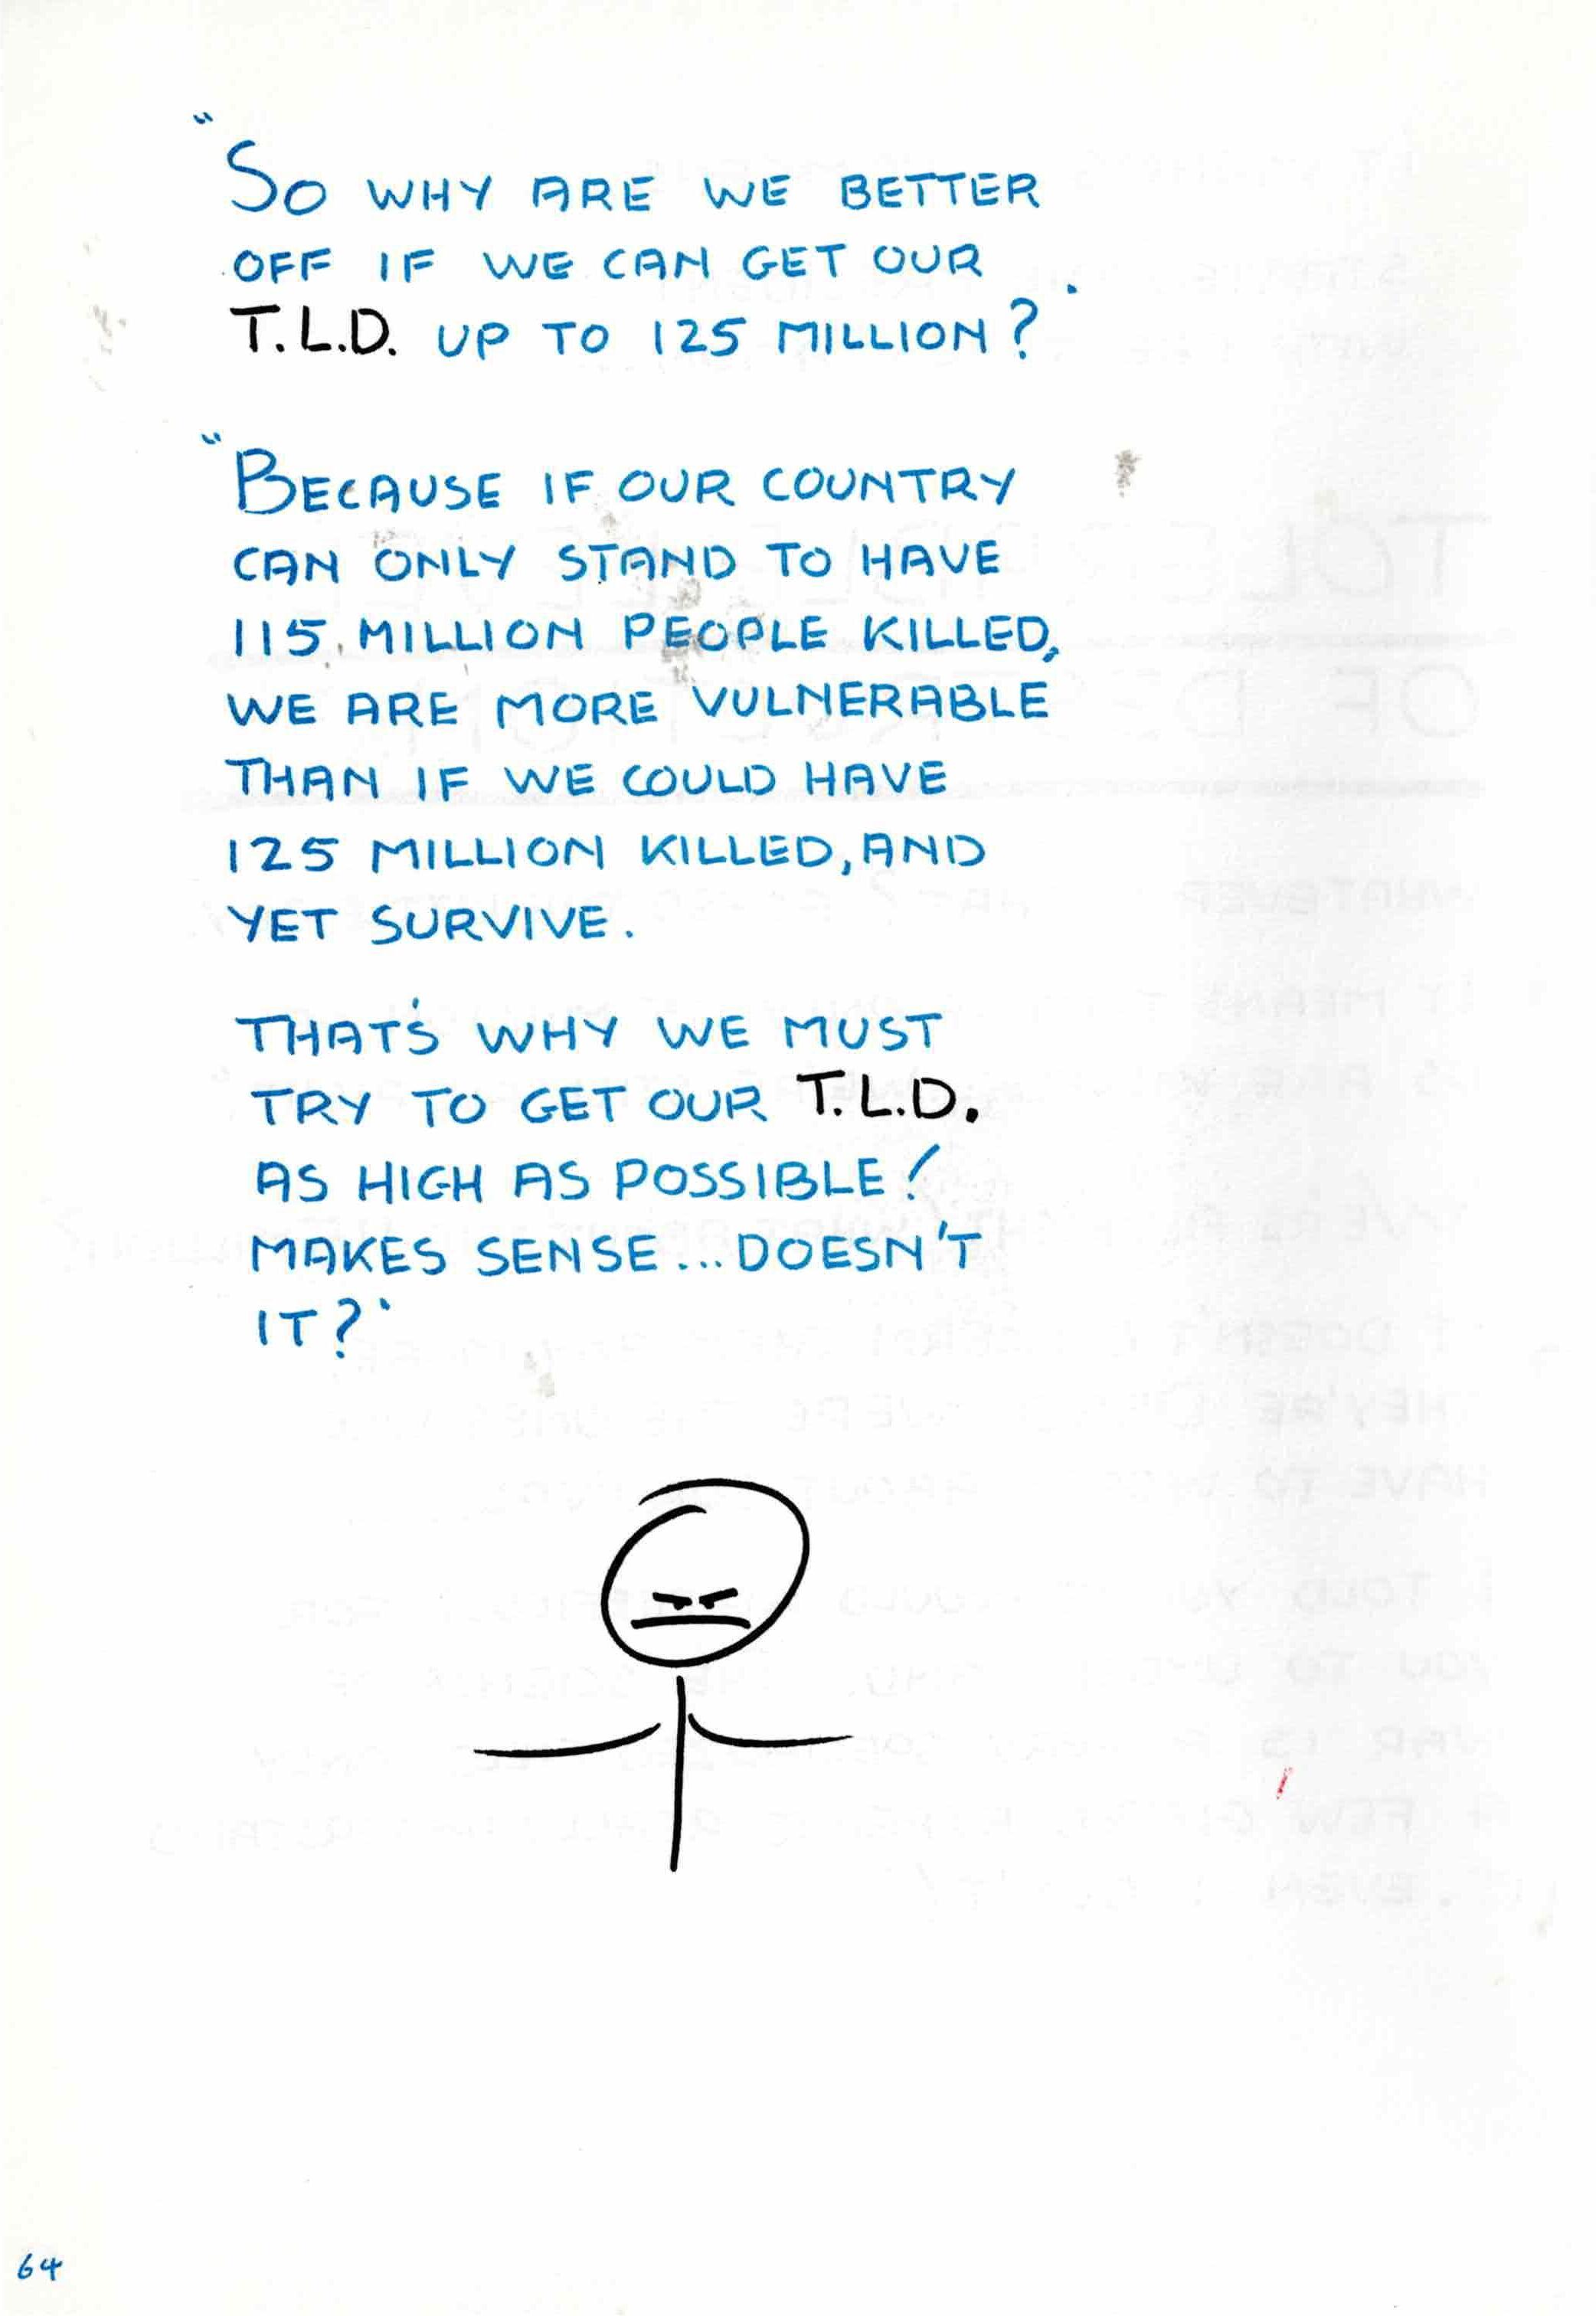 "So WHY ARE WE BETTER
OFF IF WE CAN GET OUR
T.L.D. UP TO 125 MILLION?'
"BECAUSE IF OUR COUNTRY
CAN ONLY STAND TO HAVE
115 MILLION PEOPLE KILLED,
WE ARE MORE VULNERABLE
THAN IF WE COULD HAVE
125 MILLION KILLED, AND
YET SURVIVE.
THAT'S WHY WE MUST
TRY TO GET OUR T.L.D.
AS HIGH AS POSSIBLE!
MAKES SENSE...DOESN'T
IT?'
64